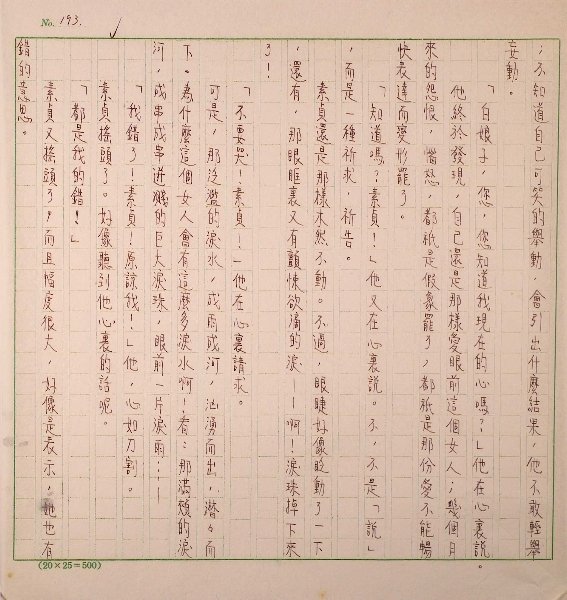 No. 193.
；不知道自己可笑的舉動，會引出什麼結果，他不敢輕舉
妄動。
「白娘子，您，您知道我現在的心嗎？」他在心裏說。
他終於發現，自己還是那樣愛眼前這個女人；幾個月
來的怨恨，惱怒，都祇是假象罷了，都祇是那份愛不能暢
快表達而變形罷了。
「知道嗎？素貞！」他又在心裏說。不，不是「說」
，而是一種祈求，祈告。
素貞還是那樣木然不動。不過，眼睫好像眨動了一下
，還有，那眼眶裏又有顫悚欲滴的淚——啊！淚珠掉下來
了！
「不要哭！素貞！」他在心裏請求。
可是，那泛濫的淚水，成雨成河，洶湧而出，潛々而
下。為什麼這個女人會有這麼多淚水啊！看：那滿頰的淚
河，成串成串迸濺的巨大淚珠，眼前一片淚雨……
「我錯了！素貞！原諒我！」他，心如刀割。
素貞搖頭了。好像聽到他心裏的話呢。
「都是我的錯！」
素貞又搖頭了，而且幅度很大，好像是表示，她也有
錯的意思。
(20×25=500)